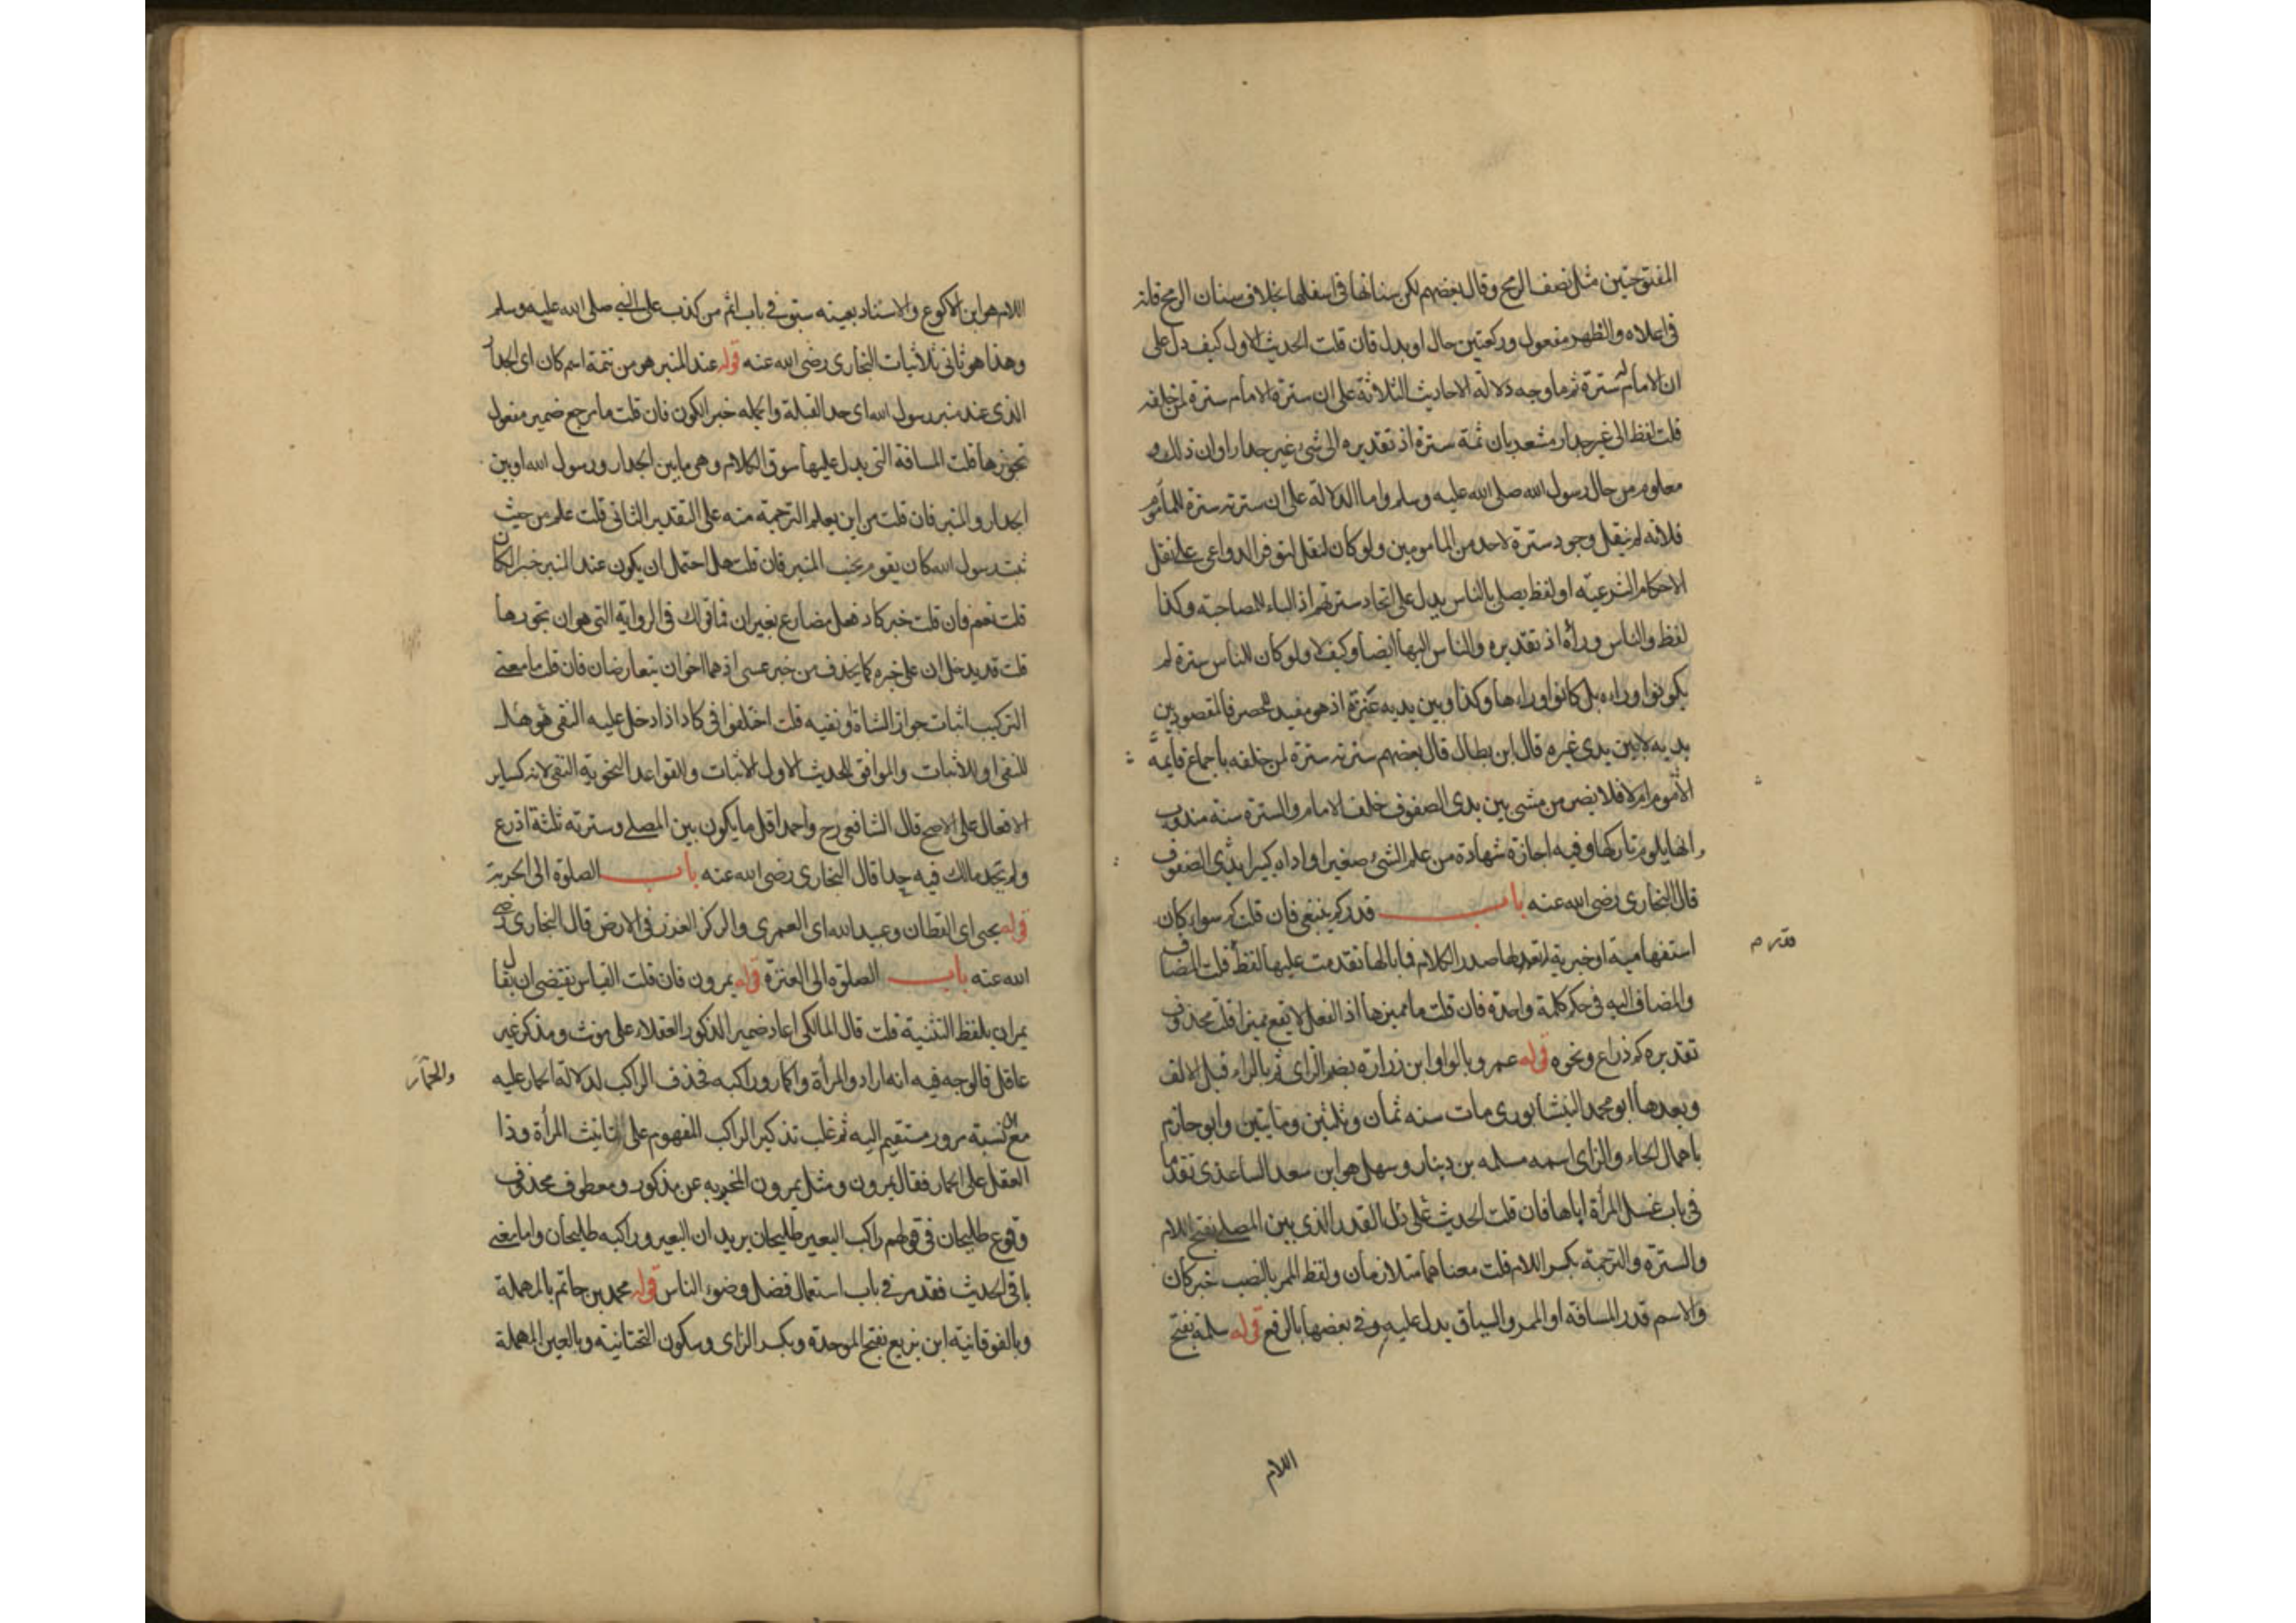 المفتوحتين مثل نصف الرمح وقال بعضهم لكن سنانها في اسفلها بخلاف سنان الرمح فانه
في اعلاه والظهر مفعول وركعتين حال او بدل فان قلت الحديث الاول كيف دل على
ان للامام سترة ثم ما وجه دلالة الاحاديث الثلاثة على ان سترة الامام سترة لمن خلفه
قلت لفظ الى غير جدار مشعر بان ثمة سترة اذ تقديره الى شئ غير جدار او ان ذلك
معلوم من حال رسول الله صلى الله عليه وسلم واما الدلالة على ان سترته سترة للمأموم
فلانه لم ينقل وجود سترة لاحد من المامومين ولو كان لنقل لتوفر الدواعى على نقل
الاحكام الشرعية او لفظ يصلى بالناس يدل على اتحاد سترتهم اذ الباء للمصاحبة وكذا
لفظ والناس وراه اذ تقديره والناس اليها ايضا وكيف لا ولو كان للناس سترة لم
يكونوا وراءه بل كانوا وراءها وكذا وبين يديه عنزة اذ هو مفيد للحصر فالمقصود بين
يديه لا بين يدى غيره قال ابن بطال قال بعضهم سترته سترة لمن خلفه باجماع قابمه
الأموم ام لا فلا يضر من مشى بين يدى الصفوف خلف الامام والسترة سنة مندوب
اليها يلوم تاركها وفيه اجازة شهادة من علم الشئ صغيرا واداه كبيرا بدى الصفوف
قال البخارى رضى الله عنه باب قدر كم ينبغى فان قلت كم سواء كان
استفهامية او خبرية لها صدر الكلام فما بالها تقدمت عليها لفظ قلت المضاف
والمضاف اليه في حكم كلمة واحدة فان قلت ما مميزها اذ الفعل لا يقع مميزا قلت محذوف
تقديره كم ذراع ونحوه قوله عمرو بالواو ابن زرارة بضم الزاى ثم بالراء قبل الالف
وبعدها ابو محمد النيشابورى مات سنه ثمان وثلثين ومايتين وابو حازم
باهمال الحاء والزاى اسمه سلمه بن دينار وسهل هو ابن سعد الساعدى تقدما
في باب غسل المرأة اباها فان قلت الحديث على دل القدر الذى بين المصلى بفتح اللام
والسترة والترجمة بكسر اللام قلت معناهما متلازمان ولفظ الممر بالنصب خبر كان
والاسم قدر المسافة او الممر والسياق يدل عليه وفي بعضها بالرفع قوله سلمة بفتح
اللام
اللام هو ابن الاكوع والاسناد بعينه سبق في باب اثم من كذب على النبى صلى الله عليه وسلم
وهذا هو ثانى ثلاثيات البخارى رضى الله عنه قوله عند المنبر هو من تتمة اسم كان اى الجدار
الذى عند منبر رسول الله اى جدار القبلة والجمله خبر الكون فان قلت ما مرجع ضمير مفعول
تجوزها قلت المسافة التى يدل عليها سوق الكلام وهى ما بين الجدار ورسول الله او بين
الجدار والمنبر فان قلت من اين يعلم الترجمة منه على التقدير الثانى قلت علم من حيث
ثبت رسول الله كان يقوم بجنب المنبر فان قلت هل احتمل ان يكون عند المنبر خبر الكان
قلت نعم فان قلت خبر كاد فعل مضارع بغير ان فما قولك في الرواية التى هو ان تجوزها
قلت قد يدخل ان على خبره كما يحذف من خبر عسى اذ هما اخوان يتعارضان فان قلت ما معنى
التركيب اثبات جواز الشاة او نفيه قلت اختلفوا في كاد اذا دخل عليه النفى هو هل
للنفى او للاثبات والموافق للحديث الاول الاثبات والقواعد النحوية النفى لانه كساير
الافعال على الاصح قال الشافعى رح واحمد اقل ما يكون بين المصلى وسترته ثلثة اذرع
ولم يحد مالك فيه حدا قال البخارى رضى الله عنه باب الصلوة الى الحربة
قوله يحيى اى القطان وعبيد الله اى العمرى والركز الغرز في الارض قال البخارى رضى
الله عنه باب الصلوة الى العنزة قوله يمرون فان قلت القياس يقتضى ان يقال
يمران بلفظ التثنية قلت قال المالكى اعاد ضمير الذكور العقلاء على مونث ومذكر غير
عاقل فالوجه فيه انه اراد والمرأة والحمار وراكبه فحذف الراكب لدلالة الحمار عليه
والحمار
مع نسبة مرور مستقيم اليه ثم غلب تذكير الراكب المفهوم على تانيث المرأة وذا
العقل على الحمار فقال يمرون ومثل يمرون المخبر به عن مذكور ومعطوف محذوف
وقوع طليحان في قولهم راكب البعير طليحان يريد ان البعير وراكبه طليحان واما معنى
باقى الحديث فقد مر في باب استعمال فضل وضوء الناس قوله محمد بن حاتم بالمهملة
وبالفوقانية ابن بزيع بفتح الموحدة وبكسر الزاى وسكون التحتانية وبالعين المهملة